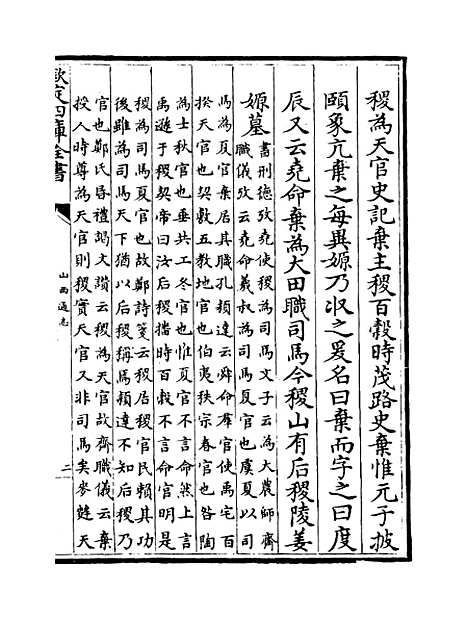 稷為天官史記棄主稷百穀時茂路史棄惟元子披
頤象亢棄之每異嫄乃收之爰名曰棄而字之曰度
辰又云堯命棄為大田職司馬今稷山有后稷陵姜
嫄墓書刑德攷堯使稷為司馬文子云為大農師齊
職儀攷云堯命羲叔為司馬夏官也虞夏以司
馬為夏官棄居其職孔穎達云舜命羣官使禹宅百
揆天官也契敷五教地官也伯夷秩宗春官也咎陶
為士秋官也垂共工冬官也惟夏官不言命然上言
禹遜于稷契帝曰汝后稷播時百穀不言命官明是
稷為司馬夏官也故鄭詩箋云稷居稷官民賴其功
後雖為司馬天下猶以后稷稱焉穎達不知后稷乃
官也鄭氏昏禮謁文讃云稷為天官故齊職儀云棄
授人時尊為天官則稷實天官又非司馬矣麥䴰天
欽定四庫全書
山西通志
二